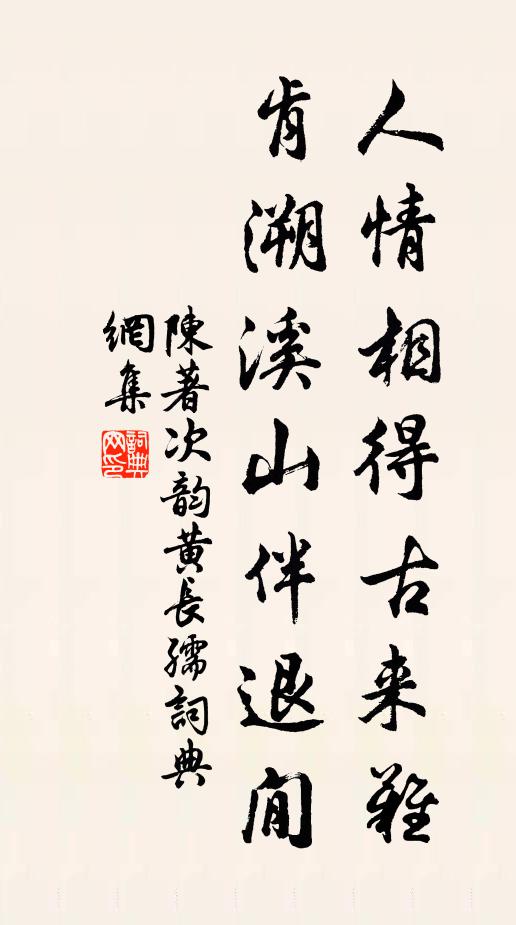 人情相得古来難
肯溯溪山伴退閒
陳著次韵黄長孺詞典
網集
詞典网印